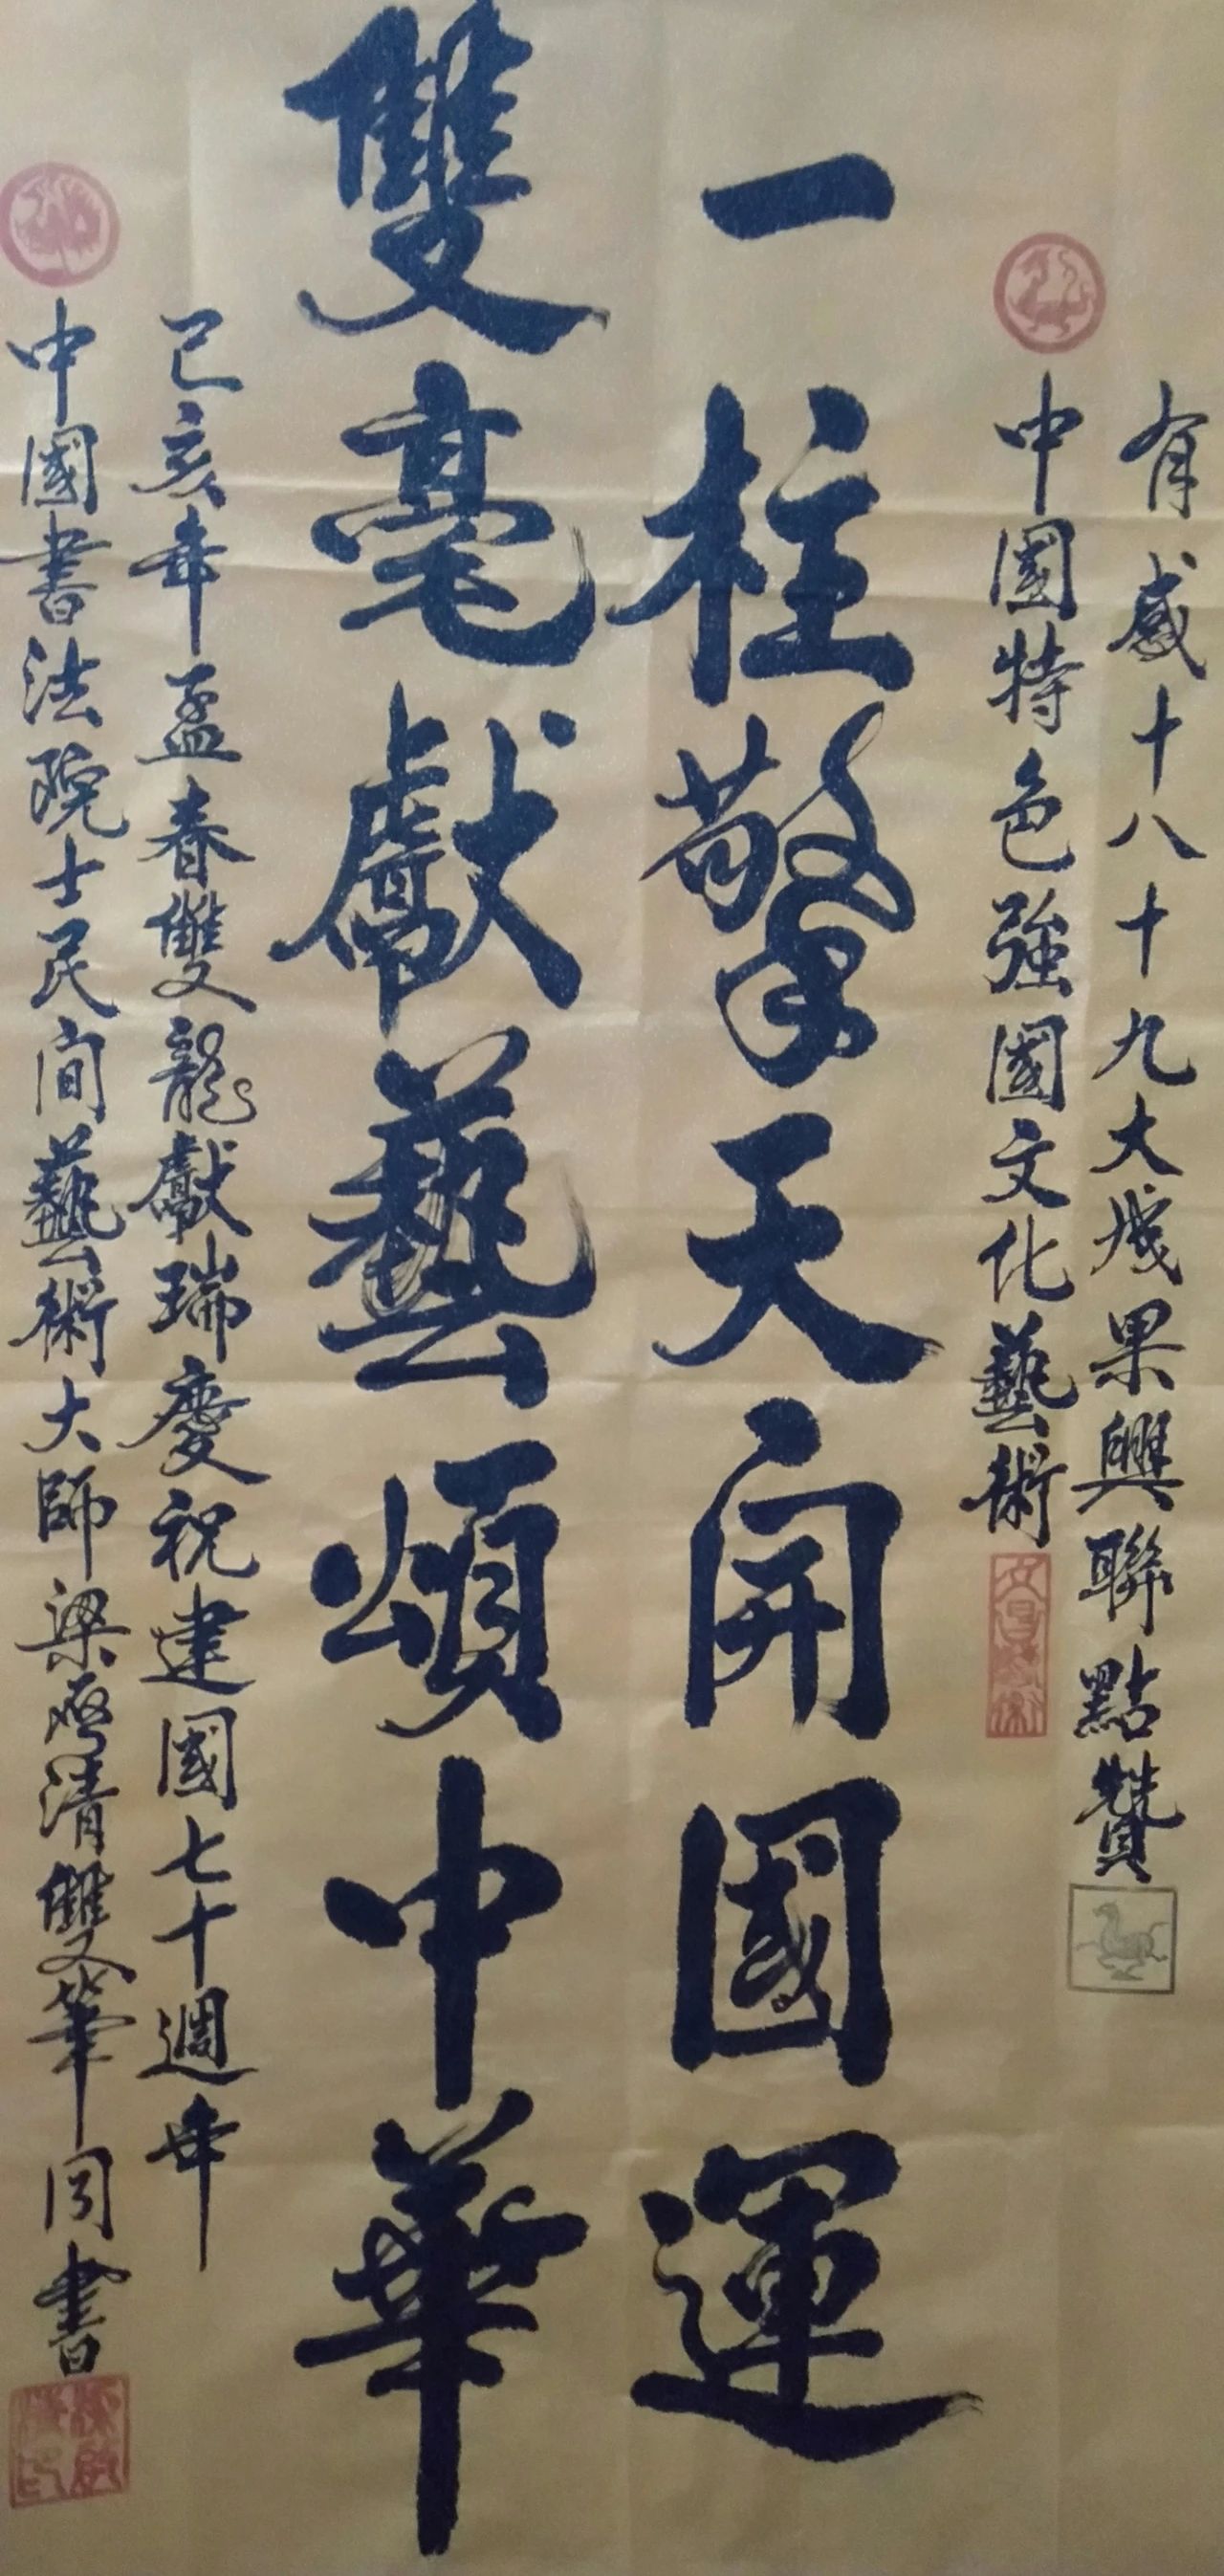 有感十八十九大成果興聯點贊
中國特色強國文化藝術
一柱擎天開國運
雙毫獻藝頌中華
己亥年孟春雙龍獻瑞慶祝建國七十週年
中國書法院士民間藝術大師梁啓清雙筆同書